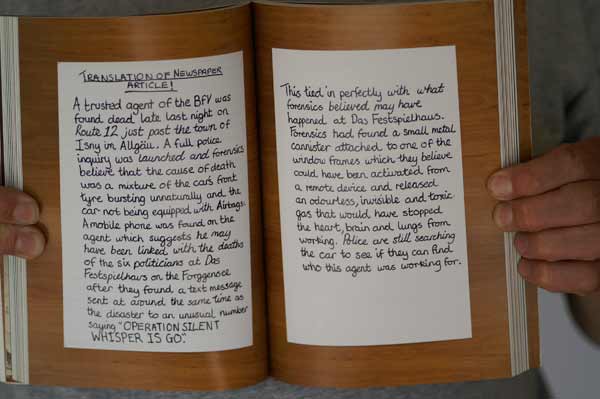 TRANSLATION OF NEWSPAPER
ARTICLE!
A trusted agent of the BfV was
found dead late last night on
Route 12 just past the town of
Isny im Allgäu. A full police
inquiry was launched and forensics
believe that the cause of death
was a mixture of the car's front
tyre bursting unnaturally and the
car not being equipped with Airbags.
A mobile phone was found on the
agent which suggests he may
have been linked with the deaths
of the six politicians at Das
Festspielhaus on the Forggensee
after they found a text message
sent at around the same time as
the disaster to an unusual number
saying "OPERATION SILENT
WHISPER IS GO."
This tied in perfectly with what
forensics believed may have
happened at Das Festspielhaus.
Forensics had found a small metal
cannister attached to one of the
window frames which they believe
could have been activated from
a remote device and released
an odourless, invisible and toxic
gas that would have stopped
the heart, brain and lungs from
working. Police are still searching
the car to see if they can find
who this agent was working for.